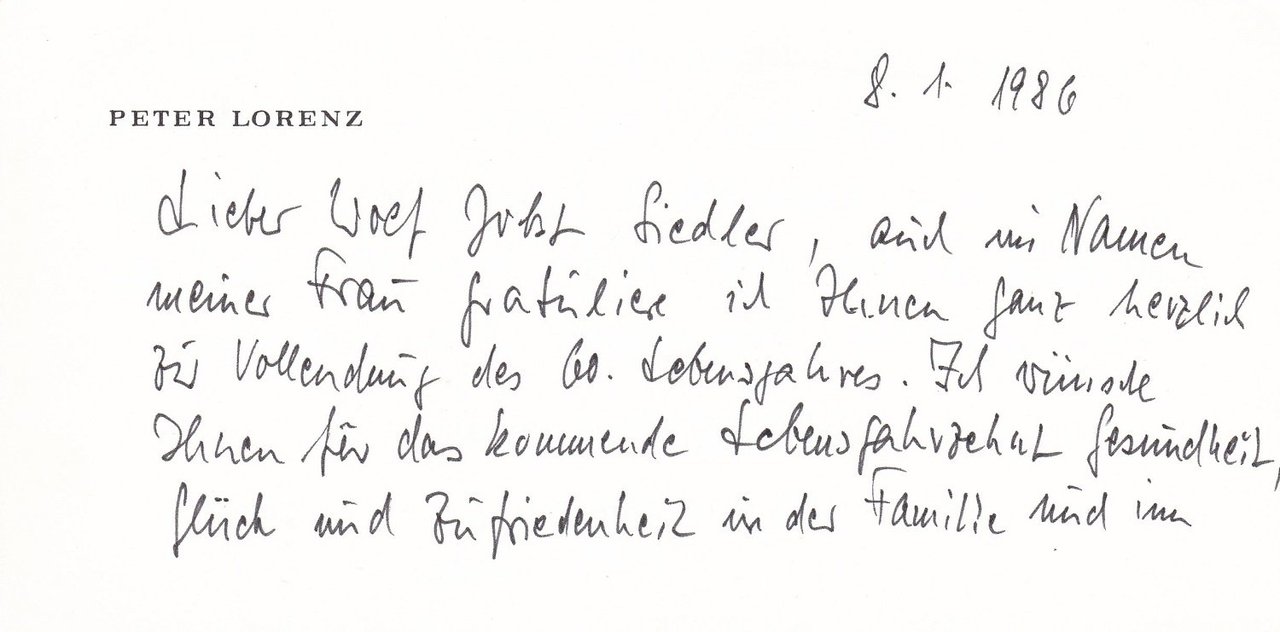 8. 1. 1986
PETER LORENZ
Lieber Wolf Jobst Siedler, auch im Namen
meiner Frau gratuliere ich Ihnen ganz herzlich
zur Vollendung des 60. Lebensjahres. Ich wünsche
Ihnen für das kommende Lebensjahrzehnt Gesundheit,
Glück und Zufriedenheit in der Familie und im